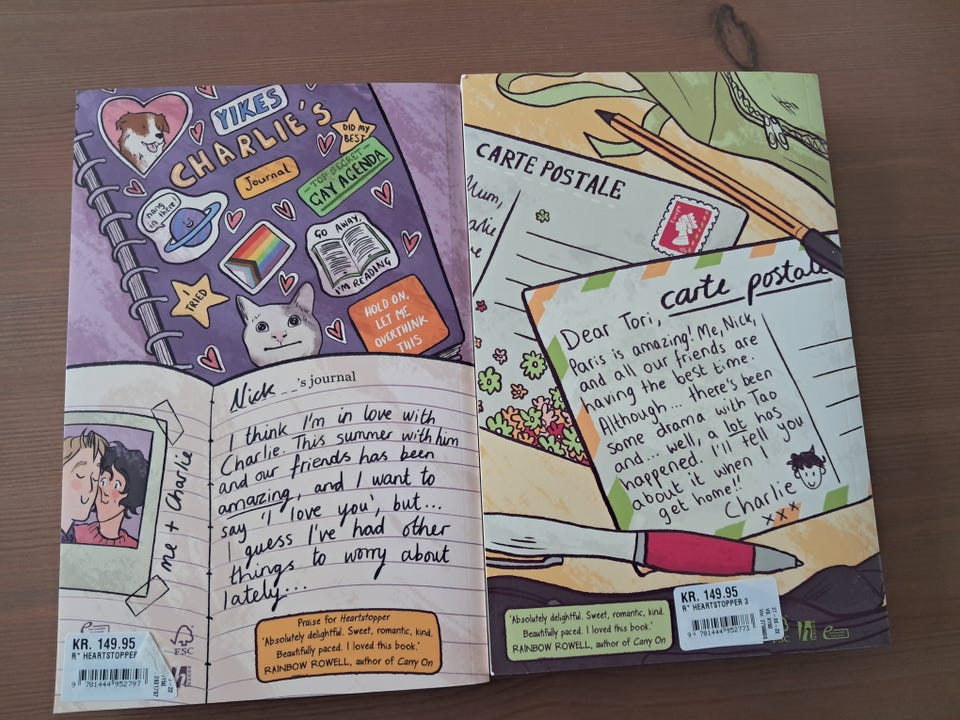 YIKES
CHARLIE'S
DID MY
BEST
Journal
-TOP SECRET-
GAY AGENDA
hang
in there!
GO AWAY,
I'M READING
I
TRIED
HOLD ON,
LET ME
OVERTHINK
THIS
Nick __'s journal
I think I'm in love with
Charlie. This summer with him
and our friends has been
amazing, and I want to
say 'I love you', but...
I guess I've had other
things to worry about
lately...
me + Charlie
Praise for Heartstopper
'Absolutely delightful. Sweet, romantic, kind.
Beautifully paced. I loved this book.'
RAINBOW ROWELL, author of Carry On
KR. 149.95
R* HEARTSTOPPEF
9 781444 952797
FSC
CARTE POSTALE
Mum,
carte postale
Dear Tori,
Paris is amazing! Me, Nick,
and all our friends are
having the best time.
Although... there's been
some drama with Tao
and... well, a lot has
happened. I'll tell you
about it when I
get home!!
Charlie
xxx
'Absolutely delightful. Sweet, romantic, kind.
Beautifully paced. I loved this book.'
RAINBOW ROWELL, author of Carry On
KR. 149.95
R* HEARTSTOPPER 3
9 781444 952773